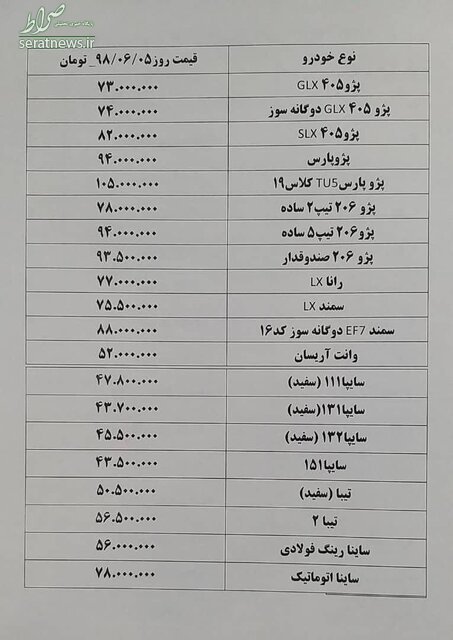 صراط
پایگاه خبری تحلیلی
seratnews.ir
نوع خودرو قیمت روز ۹۸/۰۶/۰۵_ تومان
پژو ۴۰۵ GLX ۷۳.۰۰۰.۰۰۰
پژو ۴۰۵ GLX دوگانه سوز ۷۴.۰۰۰.۰۰۰
پژو ۴۰۵ SLX ۸۲.۰۰۰.۰۰۰
پژوپارس ۹۴.۰۰۰.۰۰۰
پژو پارس TU5 کلاس۱۹ ۱۰۵.۰۰۰.۰۰۰
پژو ۲۰۶ تیپ۲ ساده ۷۸.۰۰۰.۰۰۰
پژو۲۰۶ تیپ۵ ساده ۹۴.۰۰۰.۰۰۰
پژو ۲۰۶ صندوقدار ۹۳.۵۰۰.۰۰۰
رانا LX ۷۷.۰۰۰.۰۰۰
سمند LX ۷۵.۵۰۰.۰۰۰
سمند EF7 دوگانه سوز کد۱۶ ۸۸.۰۰۰.۰۰۰
وانت آریسان ۵۲.۰۰۰.۰۰۰
سایپا۱۱۱ (سفید) ۴۷.۸۰۰.۰۰۰
سایپا۱۳۱(سفید) ۴۳.۷۰۰.۰۰۰
سایپا۱۳۲ (سفید) ۴۵.۵۰۰.۰۰۰
سایپا۱۵۱ ۴۳.۵۰۰.۰۰۰
تیبا (سفید) ۵۰.۵۰۰.۰۰۰
تیبا ۲ ۵۶.۵۰۰.۰۰۰
ساینا رینگ فولادی ۵۶.۰۰۰.۰۰۰
ساینا اتوماتیک ۷۸.۰۰۰.۰۰۰